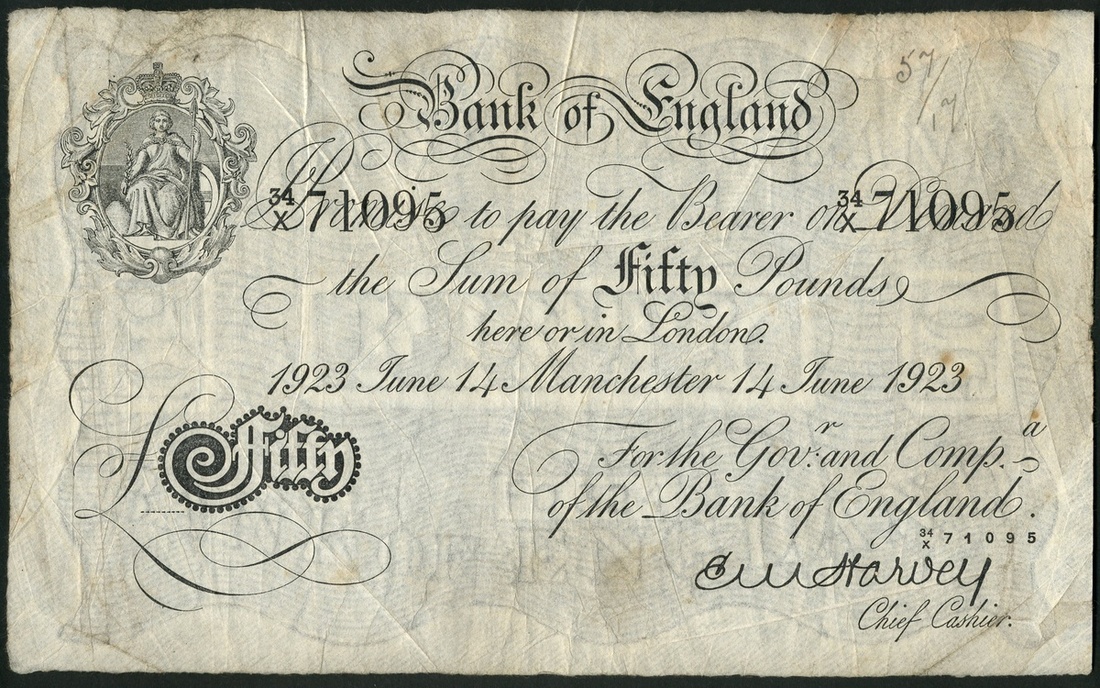 Bank of England
57/17
34/X 71095 34/X 71095
I Promise to pay the Bearer on Demand
the Sum of Fifty Pounds
here or in London.
1923 June 14 Manchester 14 June 1923
For the Gov.r and Comp.a
of the Bank of England.
£Fifty
34/X 71095
E M Harvey
Chief Cashier.